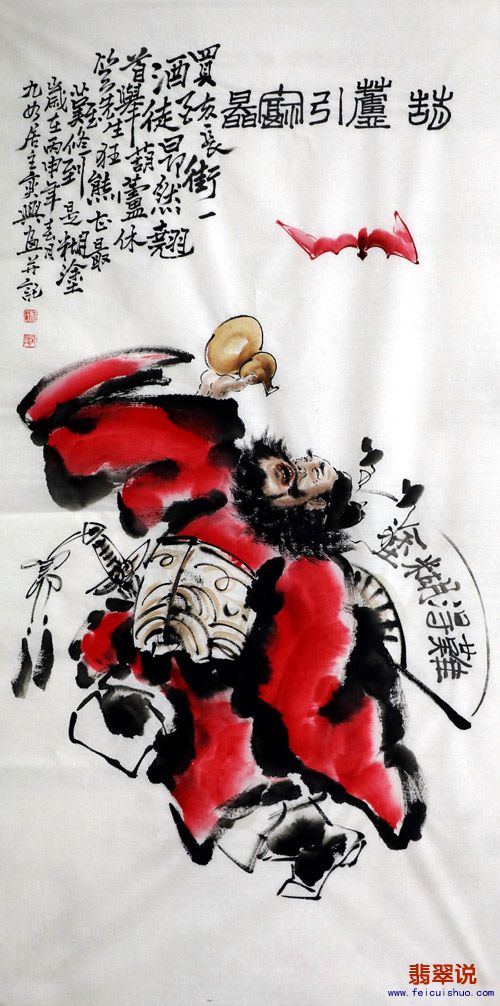 蘆引
買醉長街一
酒徒昂然翹
首舉葫蘆休
笑先生狂態最
難修到是糊塗
歲在丙申年春月
九如居主奕興画并記
難得糊塗
翡翠说
www.feicuishuo.com